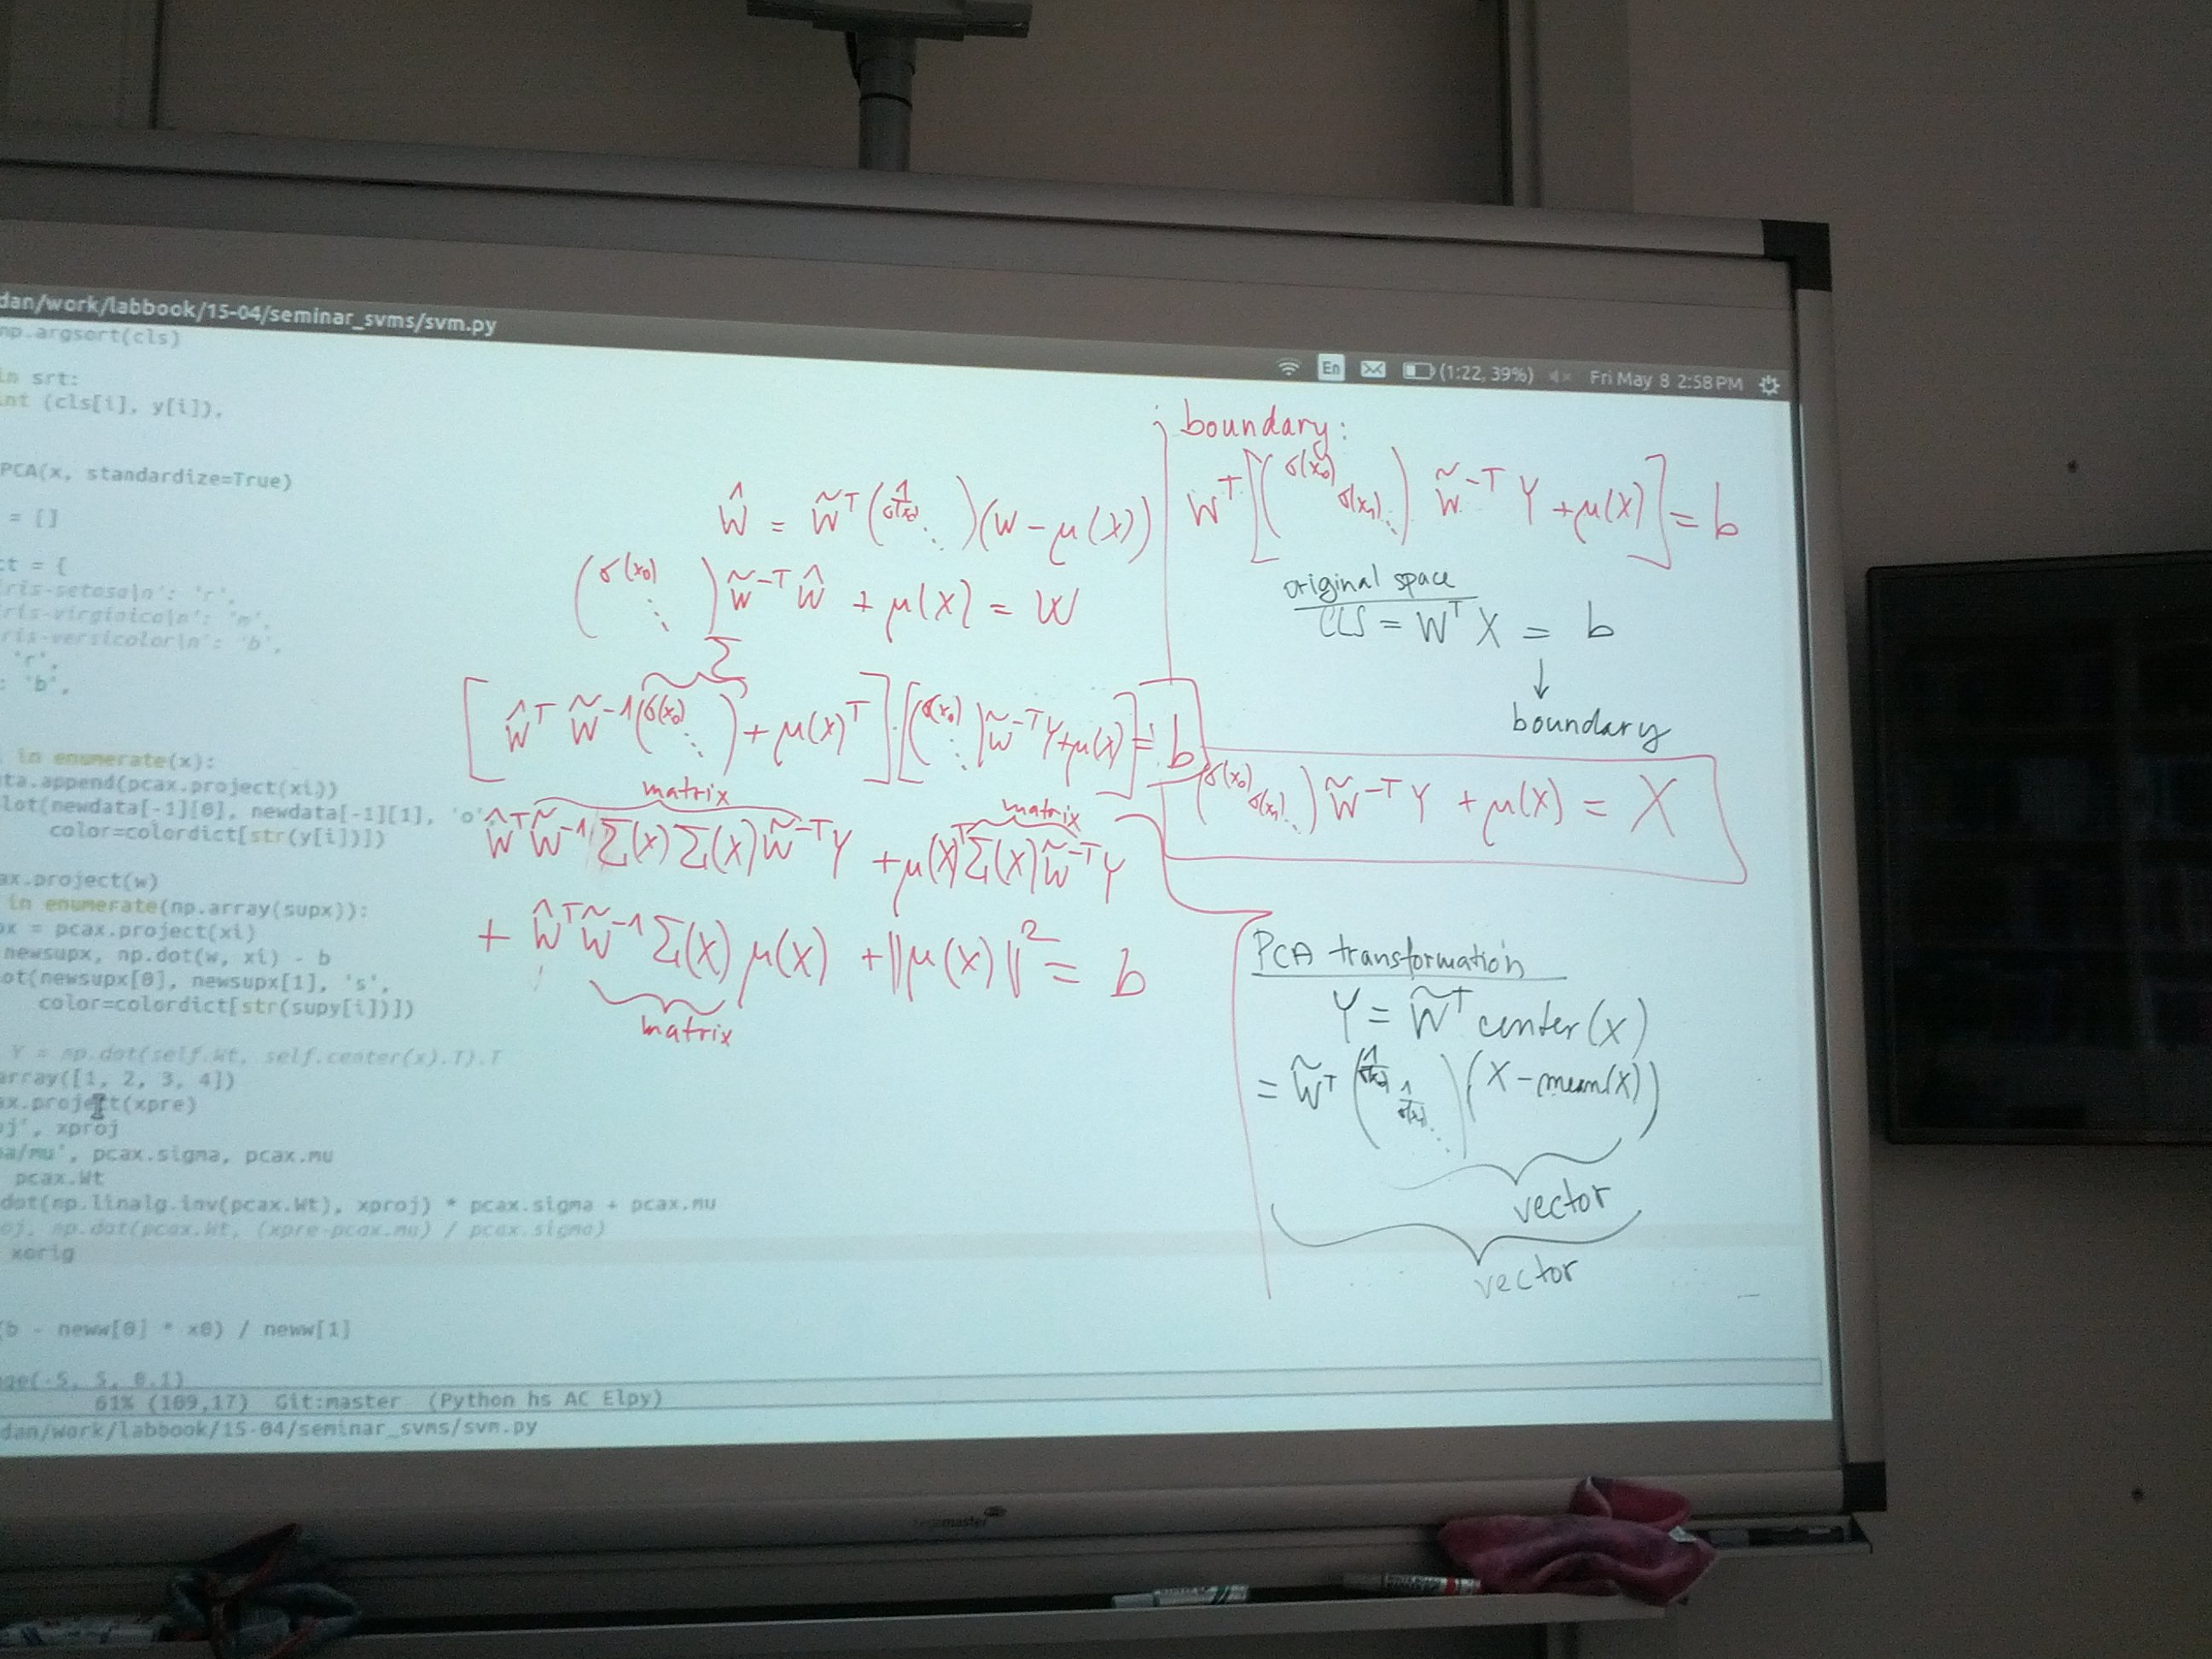 dan/work/labbook/15-04/seminar_svms/svm.py
En (1:22, 39%) Fri May 8 2:58 PM
np.argsort(cls)
in srt:
int (cls[i], y[i]),
PCA(x, standardize=True)
= []
ct = {
iris-setosa\n': 'r',
iris-virginica\n': 'm',
iris-versicolor\n': 'b',
'r',
: 'b',
in enumerate(x):
ta.append(pcax.project(xi))
lot(newdata[-1][0], newdata[-1][1], 'o',
color=colordict[str(y[i])])
ax.project(w)
in enumerate(np.array(supx)):
px = pcax.project(xi)
newsupx, np.dot(w, xi) - b
ot(newsupx[0], newsupx[1], 's',
color=colordict[str(supy[i])])
Y = np.dot(self.Wt, self.center(x).T).T
array([1, 2, 3, 4])
ax.project(xpre)
j', xproj
a/mu', pcax.sigma, pcax.mu
pcax.Wt
dot(np.linalg.inv(pcax.Wt), xproj) * pcax.sigma + pcax.mu
oj, np.dot(pcax.Wt, (xpre-pcax.mu) / pcax.sigma)
xorig
(b - neww[0] * x0) / neww[1]
nge(-5, 5, 0.1)
61% (109,17) Git:master (Python hs AC Elpy)
dan/work/labbook/15-04/seminar_svms/svm.py
Ŵ = W̃ᵀ (1/σ(x₀) ⋱) (W − μ(X))
(σ(x₀) ⋱) W̃⁻ᵀ Ŵ + μ(X) = W
Σ
[Ŵᵀ W̃⁻¹ (σ(x₀) ⋱) + μ(X)ᵀ] · [(σ(x₀) ⋱) W̃⁻ᵀ Y + μ(X)] = b
matrix
matrix
Ŵᵀ W̃⁻¹ Σ(X) Σ(X) W̃⁻ᵀ Y + μ(X)ᵀ Σ(X) W̃⁻ᵀ Y
+ Ŵᵀ W̃⁻¹ Σ(X) μ(X) + ‖μ(X)‖² = b
matrix
boundary:
Wᵀ [(σ(x₀) σ(x₁) ⋱) W̃⁻ᵀ Y + μ(X)] = b
original space
CLS = Wᵀ X = b
↓
boundary
(σ(x₀) σ(x₁) ⋱) W̃⁻ᵀ Y + μ(X) = X
PCA transformation
Y = W̃ᵀ center(X)
= W̃ᵀ (1/σ(x₀) 1/σ(x₁) ⋱) (X − mean(X))
vector
vector